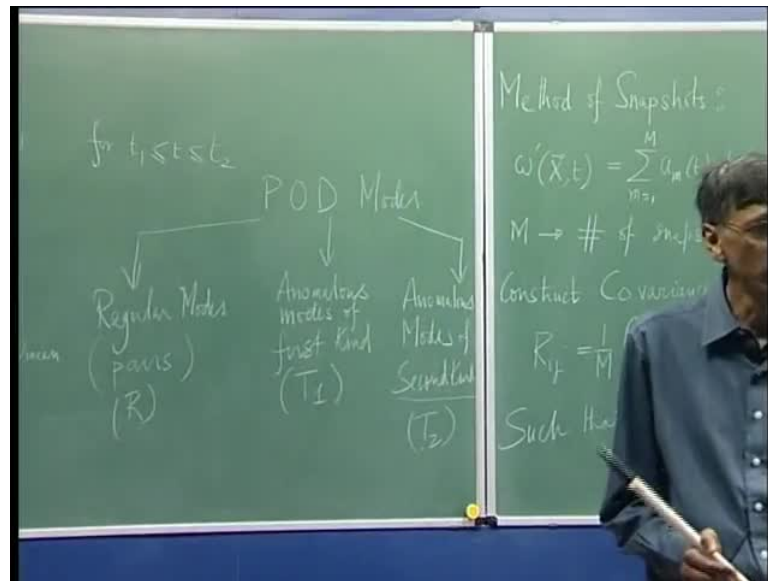 for t₁ ≤ t ≤ t₂
POD Modes
Regular Modes
(pairs)
(R)
Anomalous
modes of
first kind
(T1)
Anomalous
Modes of
Second Kind
(T2)
Method of Snapshots:
ω'(x̄,t) = Σ_{m=1}^{M} a_m(t)
M → # of snaps
Construct Covariance
R_ij = 1/M
Such tha